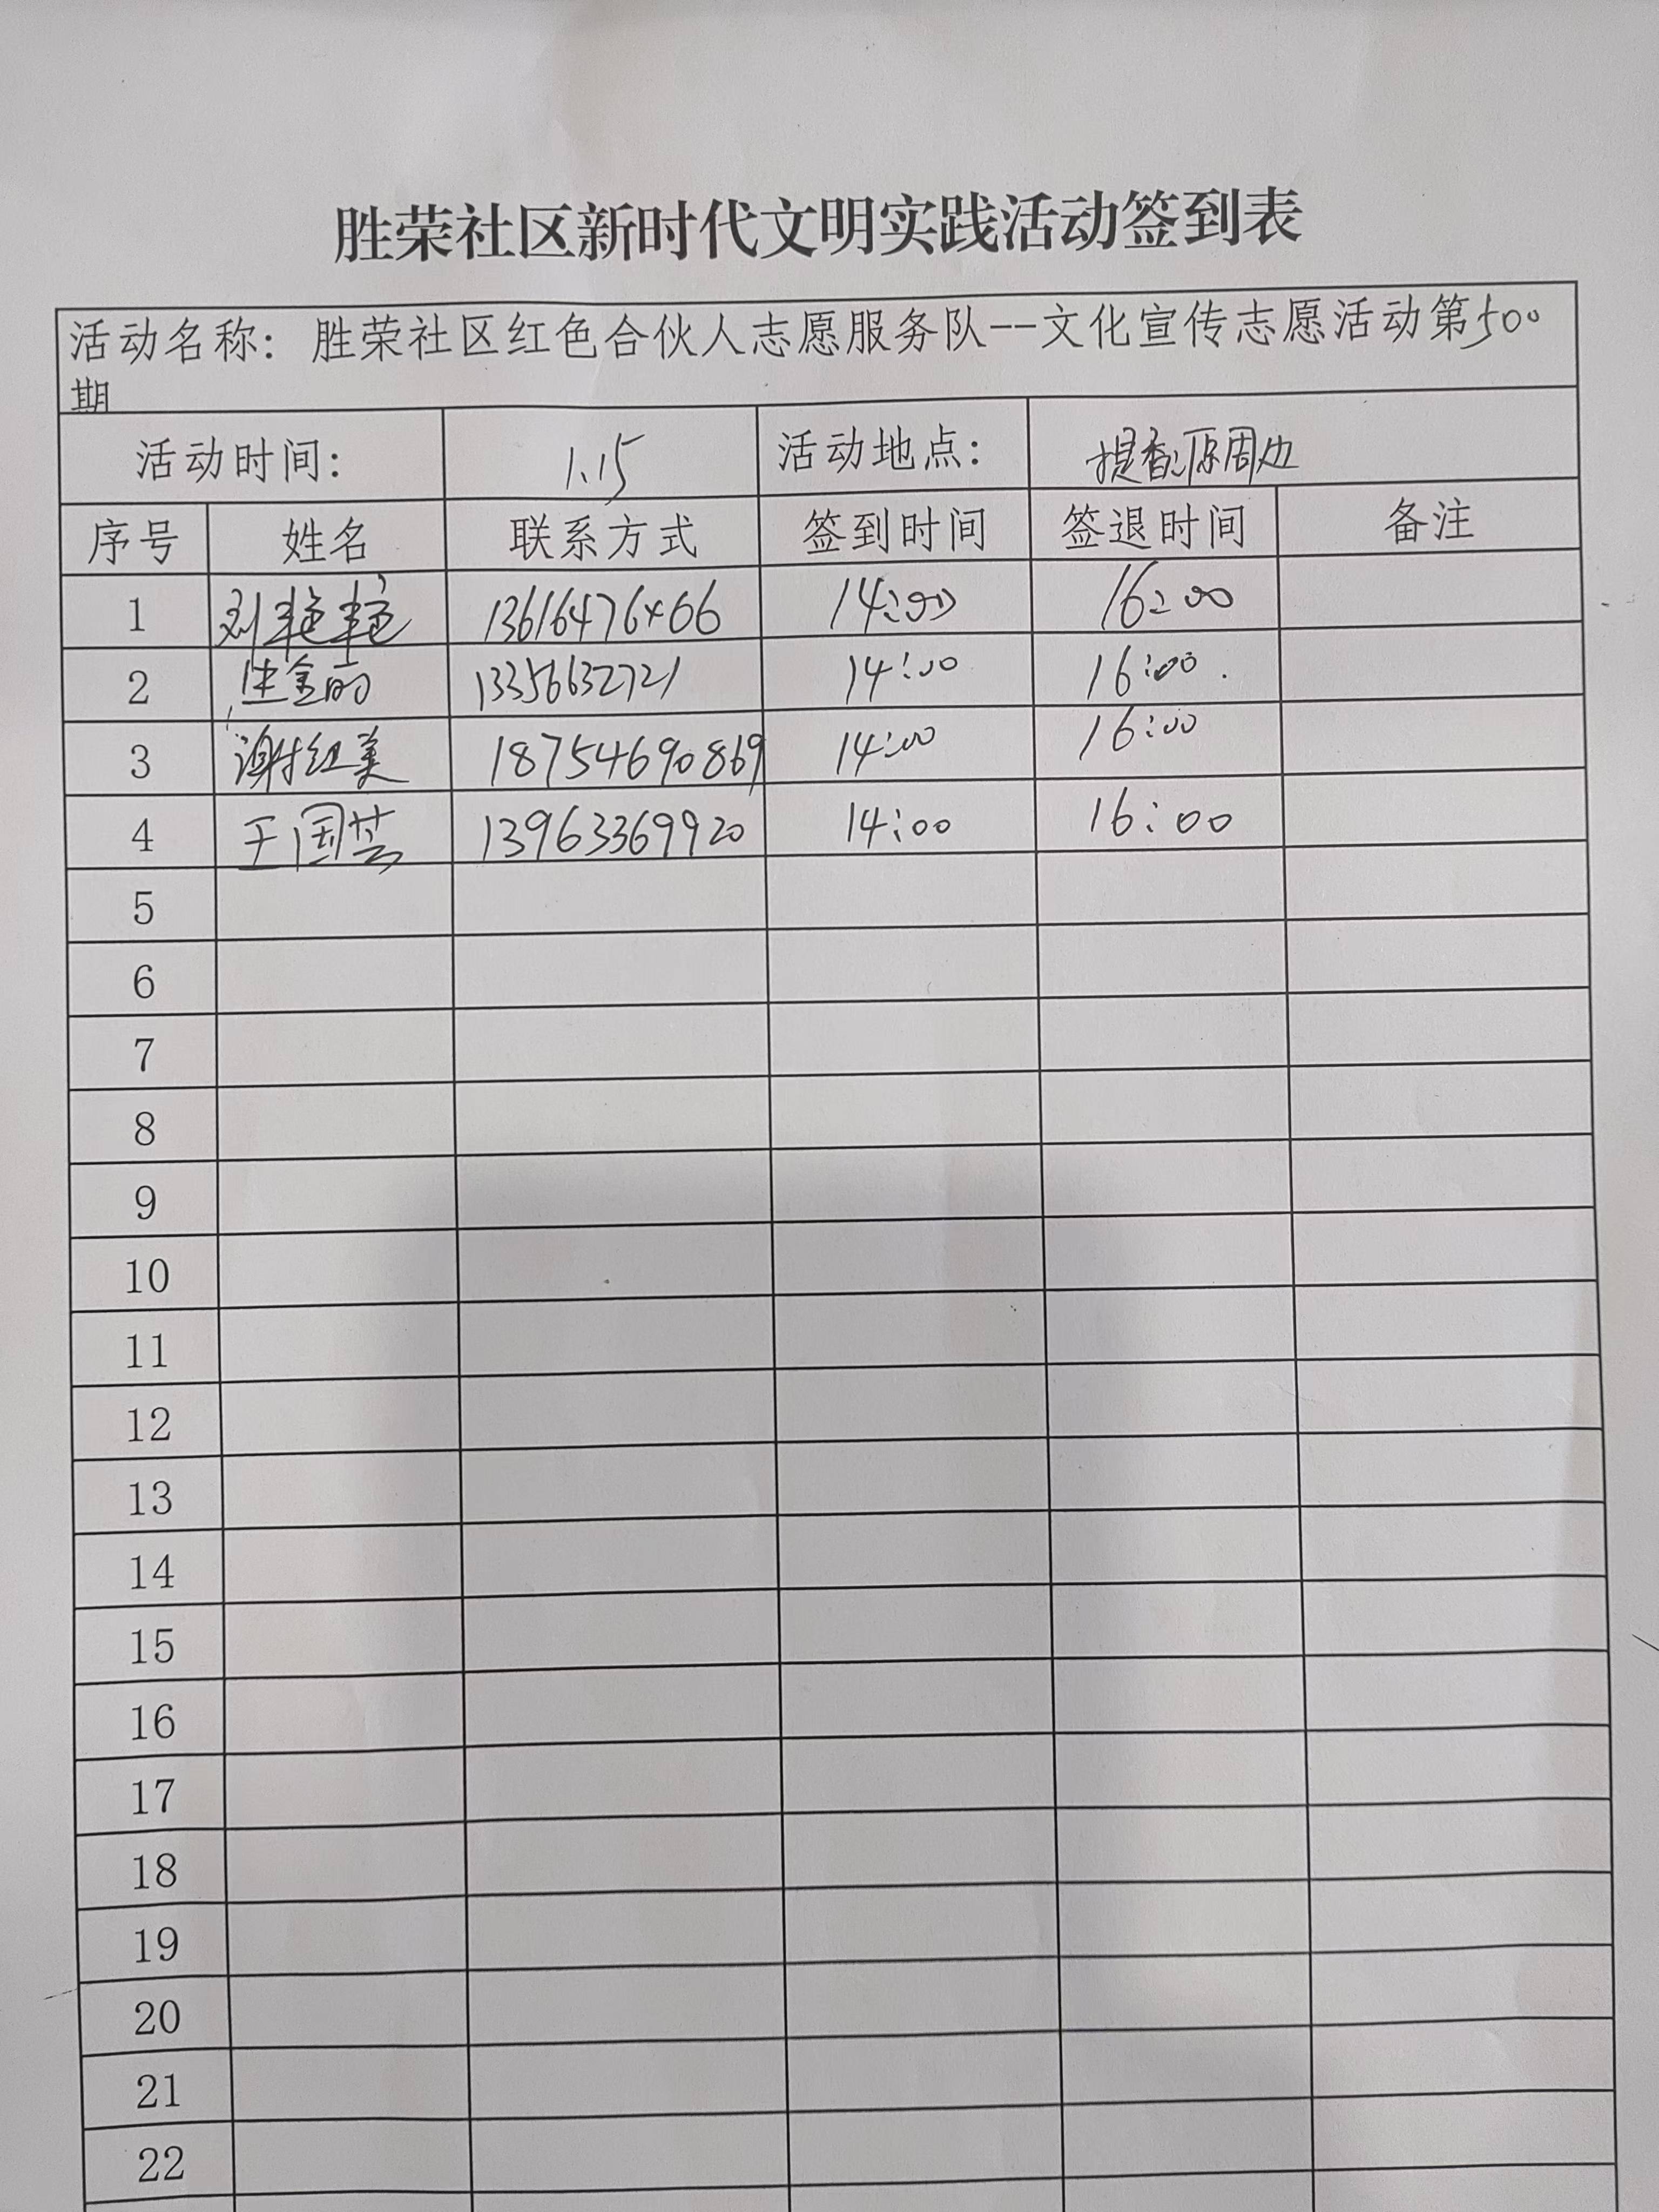 胜荣社区新时代文明实践活动签到表
活动名称：胜荣社区红色合伙人志愿服务队--文化宣传志愿活动第500
期
活动时间： 1.15 活动地点： 提香郡周边
序号 姓名 联系方式 签到时间 签退时间 备注
1 刘艳艳 13616476466 14:00 16:00
2 金丽 13356632721 14:00 16:00
3 谢红美 18754690869 14:00 16:00
4 王国芸 13963369920 14:00 16:00
5
6
7
8
9
10
11
12
13
14
15
16
17
18
19
20
21
22